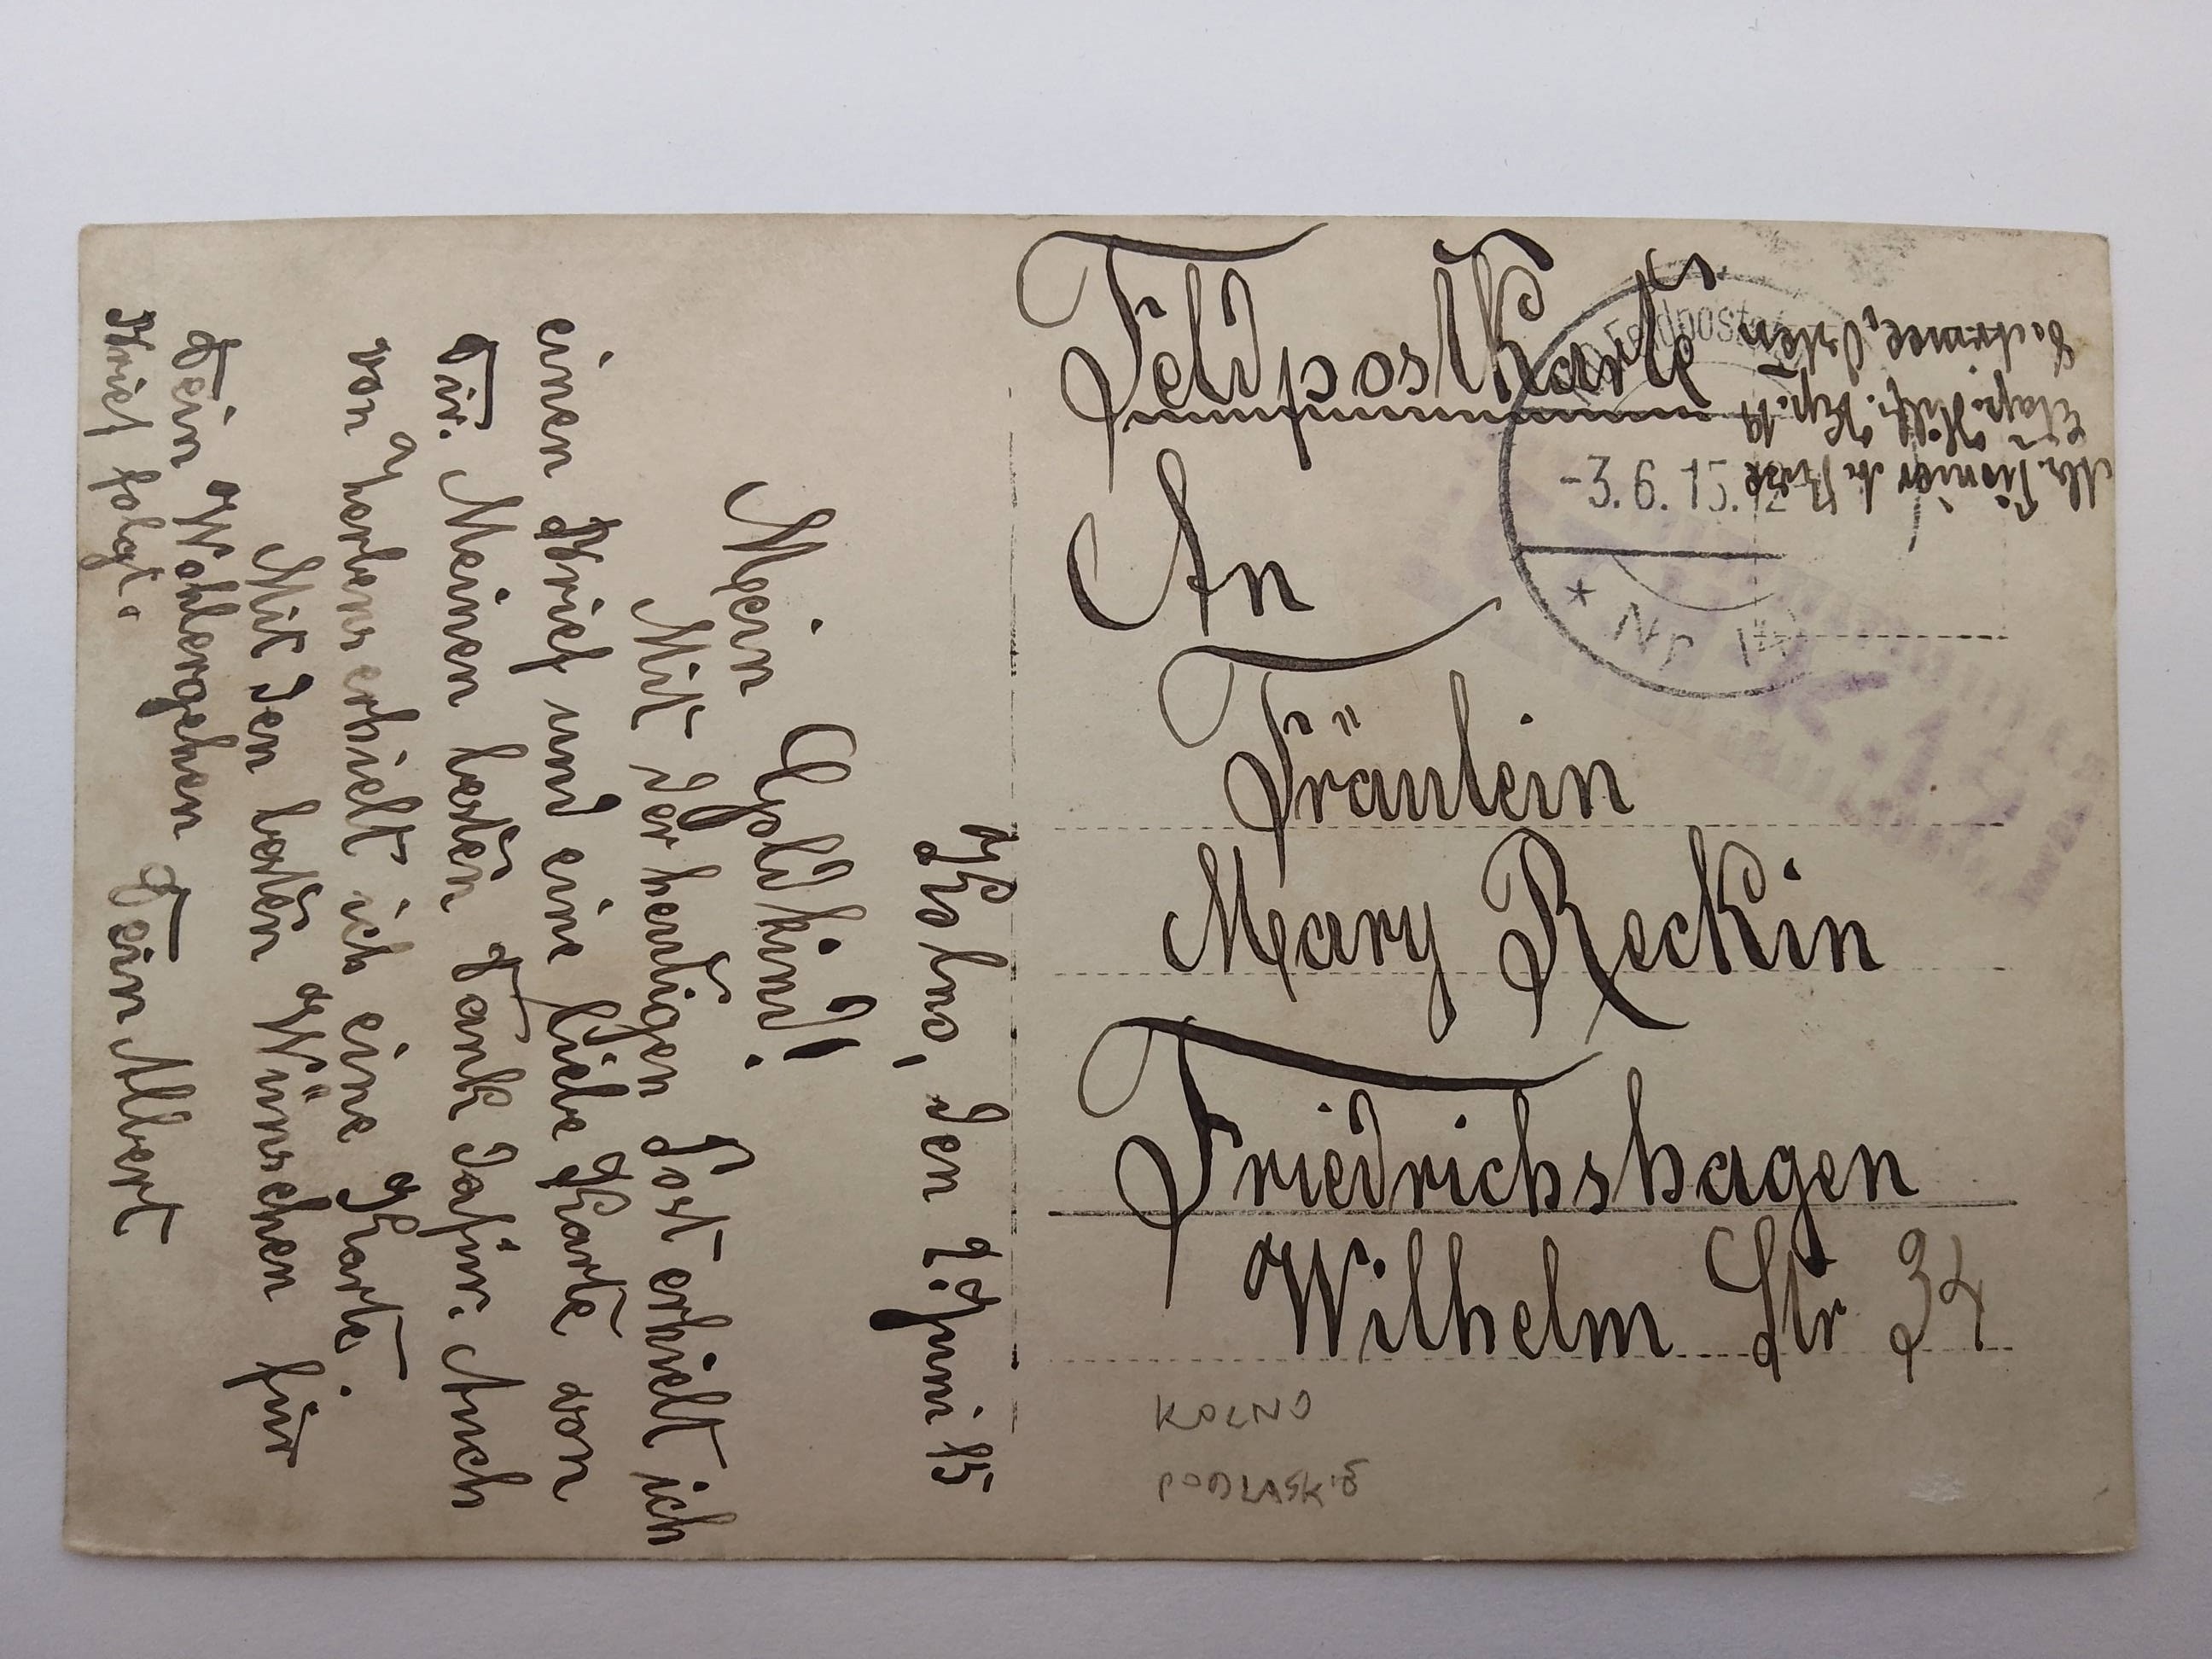 Kolno, den 2. Juni 15
Mein Goldkind!
Mit der heutigen Post erhielt ich
einen Brief und eine liebe Karte von
Dir. Meinen besten Dank dafür. Auch
von erhielt ich eine Karte.
Mit den besten Wünschen für
Dein Wohlergehen Dein Albert
Brief folgt.
Feldpostkarte
An
Fräulein
Mary Reckin
Friedrichshagen
Wilhelm Str 34
Feldpost
-3.6.15.
* Nr
KOLNO
PODLASKIE